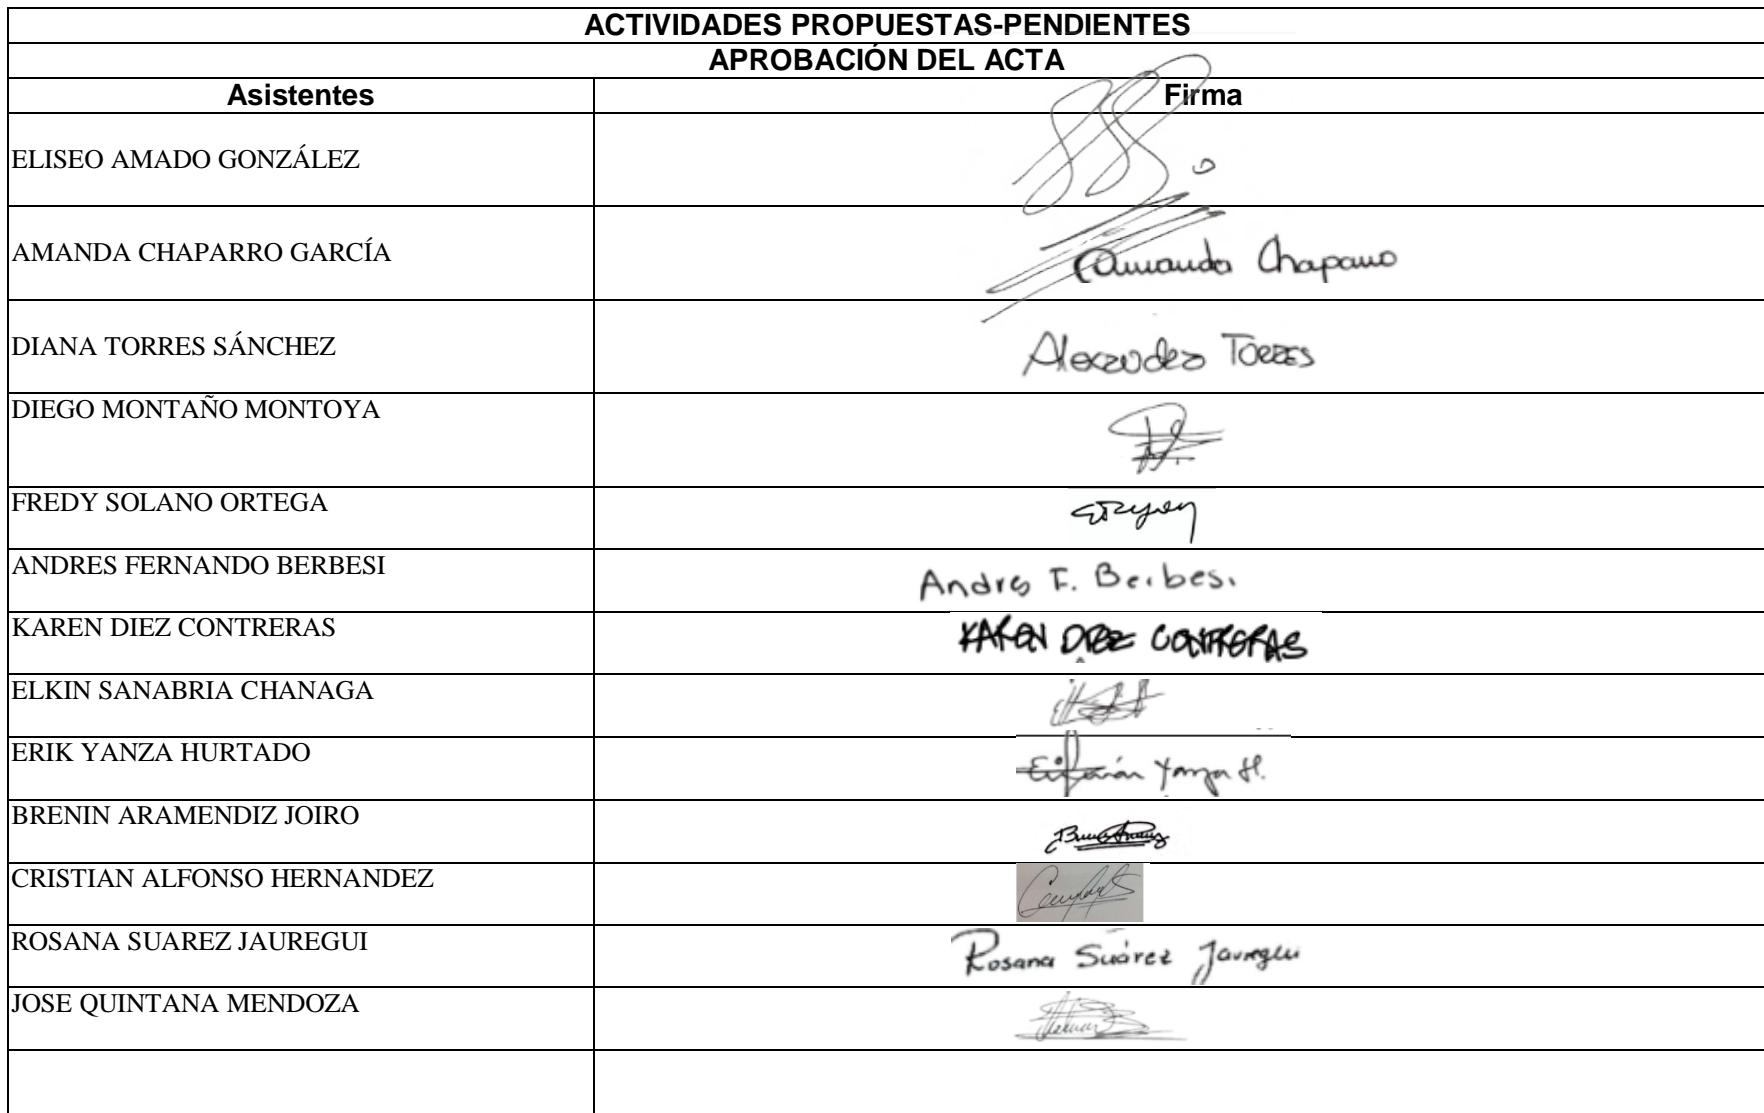 ACTIVIDADES PROPUESTAS-PENDIENTES
APROBACIÓN DEL ACTA
Asistentes Firma
ELISEO AMADO GONZÁLEZ
AMANDA CHAPARRO GARCÍA Amanda Chaparro
DIANA TORRES SÁNCHEZ Alexandra TORRES
DIEGO MONTAÑO MONTOYA
FREDY SOLANO ORTEGA
ANDRES FERNANDO BERBESI Andres F. Berbesi.
KAREN DIEZ CONTRERAS KAREN DIEZ CONTRERAS
ELKIN SANABRIA CHANAGA
ERIK YANZA HURTADO Yanza H.
BRENIN ARAMENDIZ JOIRO
CRISTIAN ALFONSO HERNANDEZ
ROSANA SUAREZ JAUREGUI Rosana Suárez Jauregui
JOSE QUINTANA MENDOZA